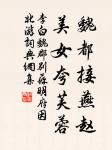 魏都接燕趙
美女夸芙蓉
李白魏郡別蘇明府因
北游詞典網集